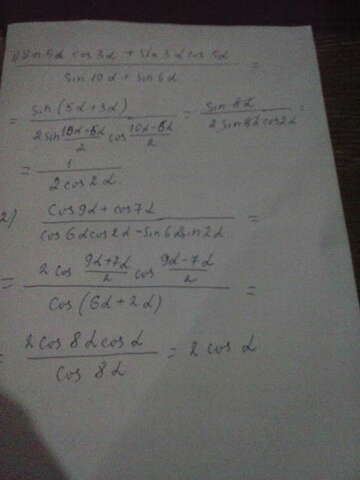 1) sin5α cos3α + sin3α cos5α / sin10α + sin6α =
= sin(5α+3α) / 2sin (10α-6α)/2 cos (10α-6α)/2 = sin8α / 2sin8α cos2α =
= 1 / 2cos2α
2) cos9α + cos7α / cos6α cos2α - sin6α sin2α =
= 2cos (9α+7α)/2 cos (9α-7α)/2 / cos(6α+2α) =
= 2cos8α cosα / cos8α = 2cosα